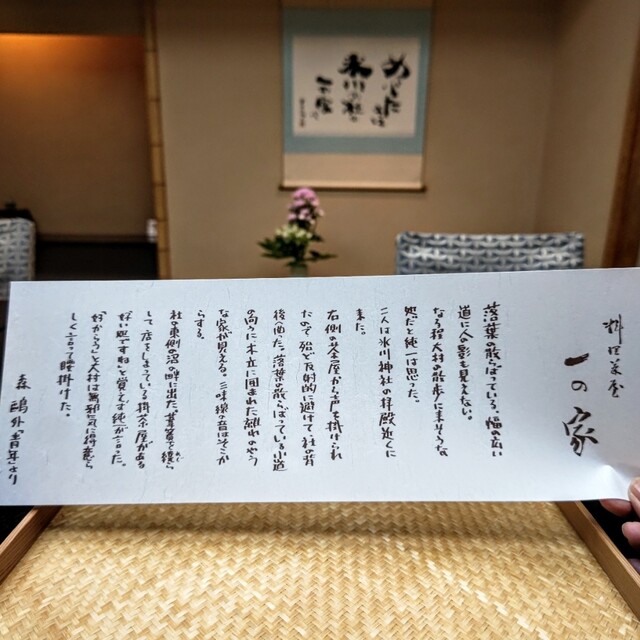 一の家
落葉の散らばつている、幅の広い
道に、人影も見えない。
なる程大村の散歩に来さうな
処だと純一は思つた。
二人は氷川神社の拝殿近くに
来た。
右側の茶屋から声を掛けられ
たので、殆ど反射的に避けて、社の背
後へ曲つた。落葉の散らばつている小道
の向うに、木立に囲まれた離れのやう
な家が見える。三味線の音はそこか
らする。
社の東側の沼の畔に出た。葦簀を立て繞ら
して、店をしまつている掛茶屋がある
好い処ですねと、覚えず純一が云つた。
好からうと、大村は無邪気に得意ら
しく云つて、腰掛けた。
森 鴎外 青年より